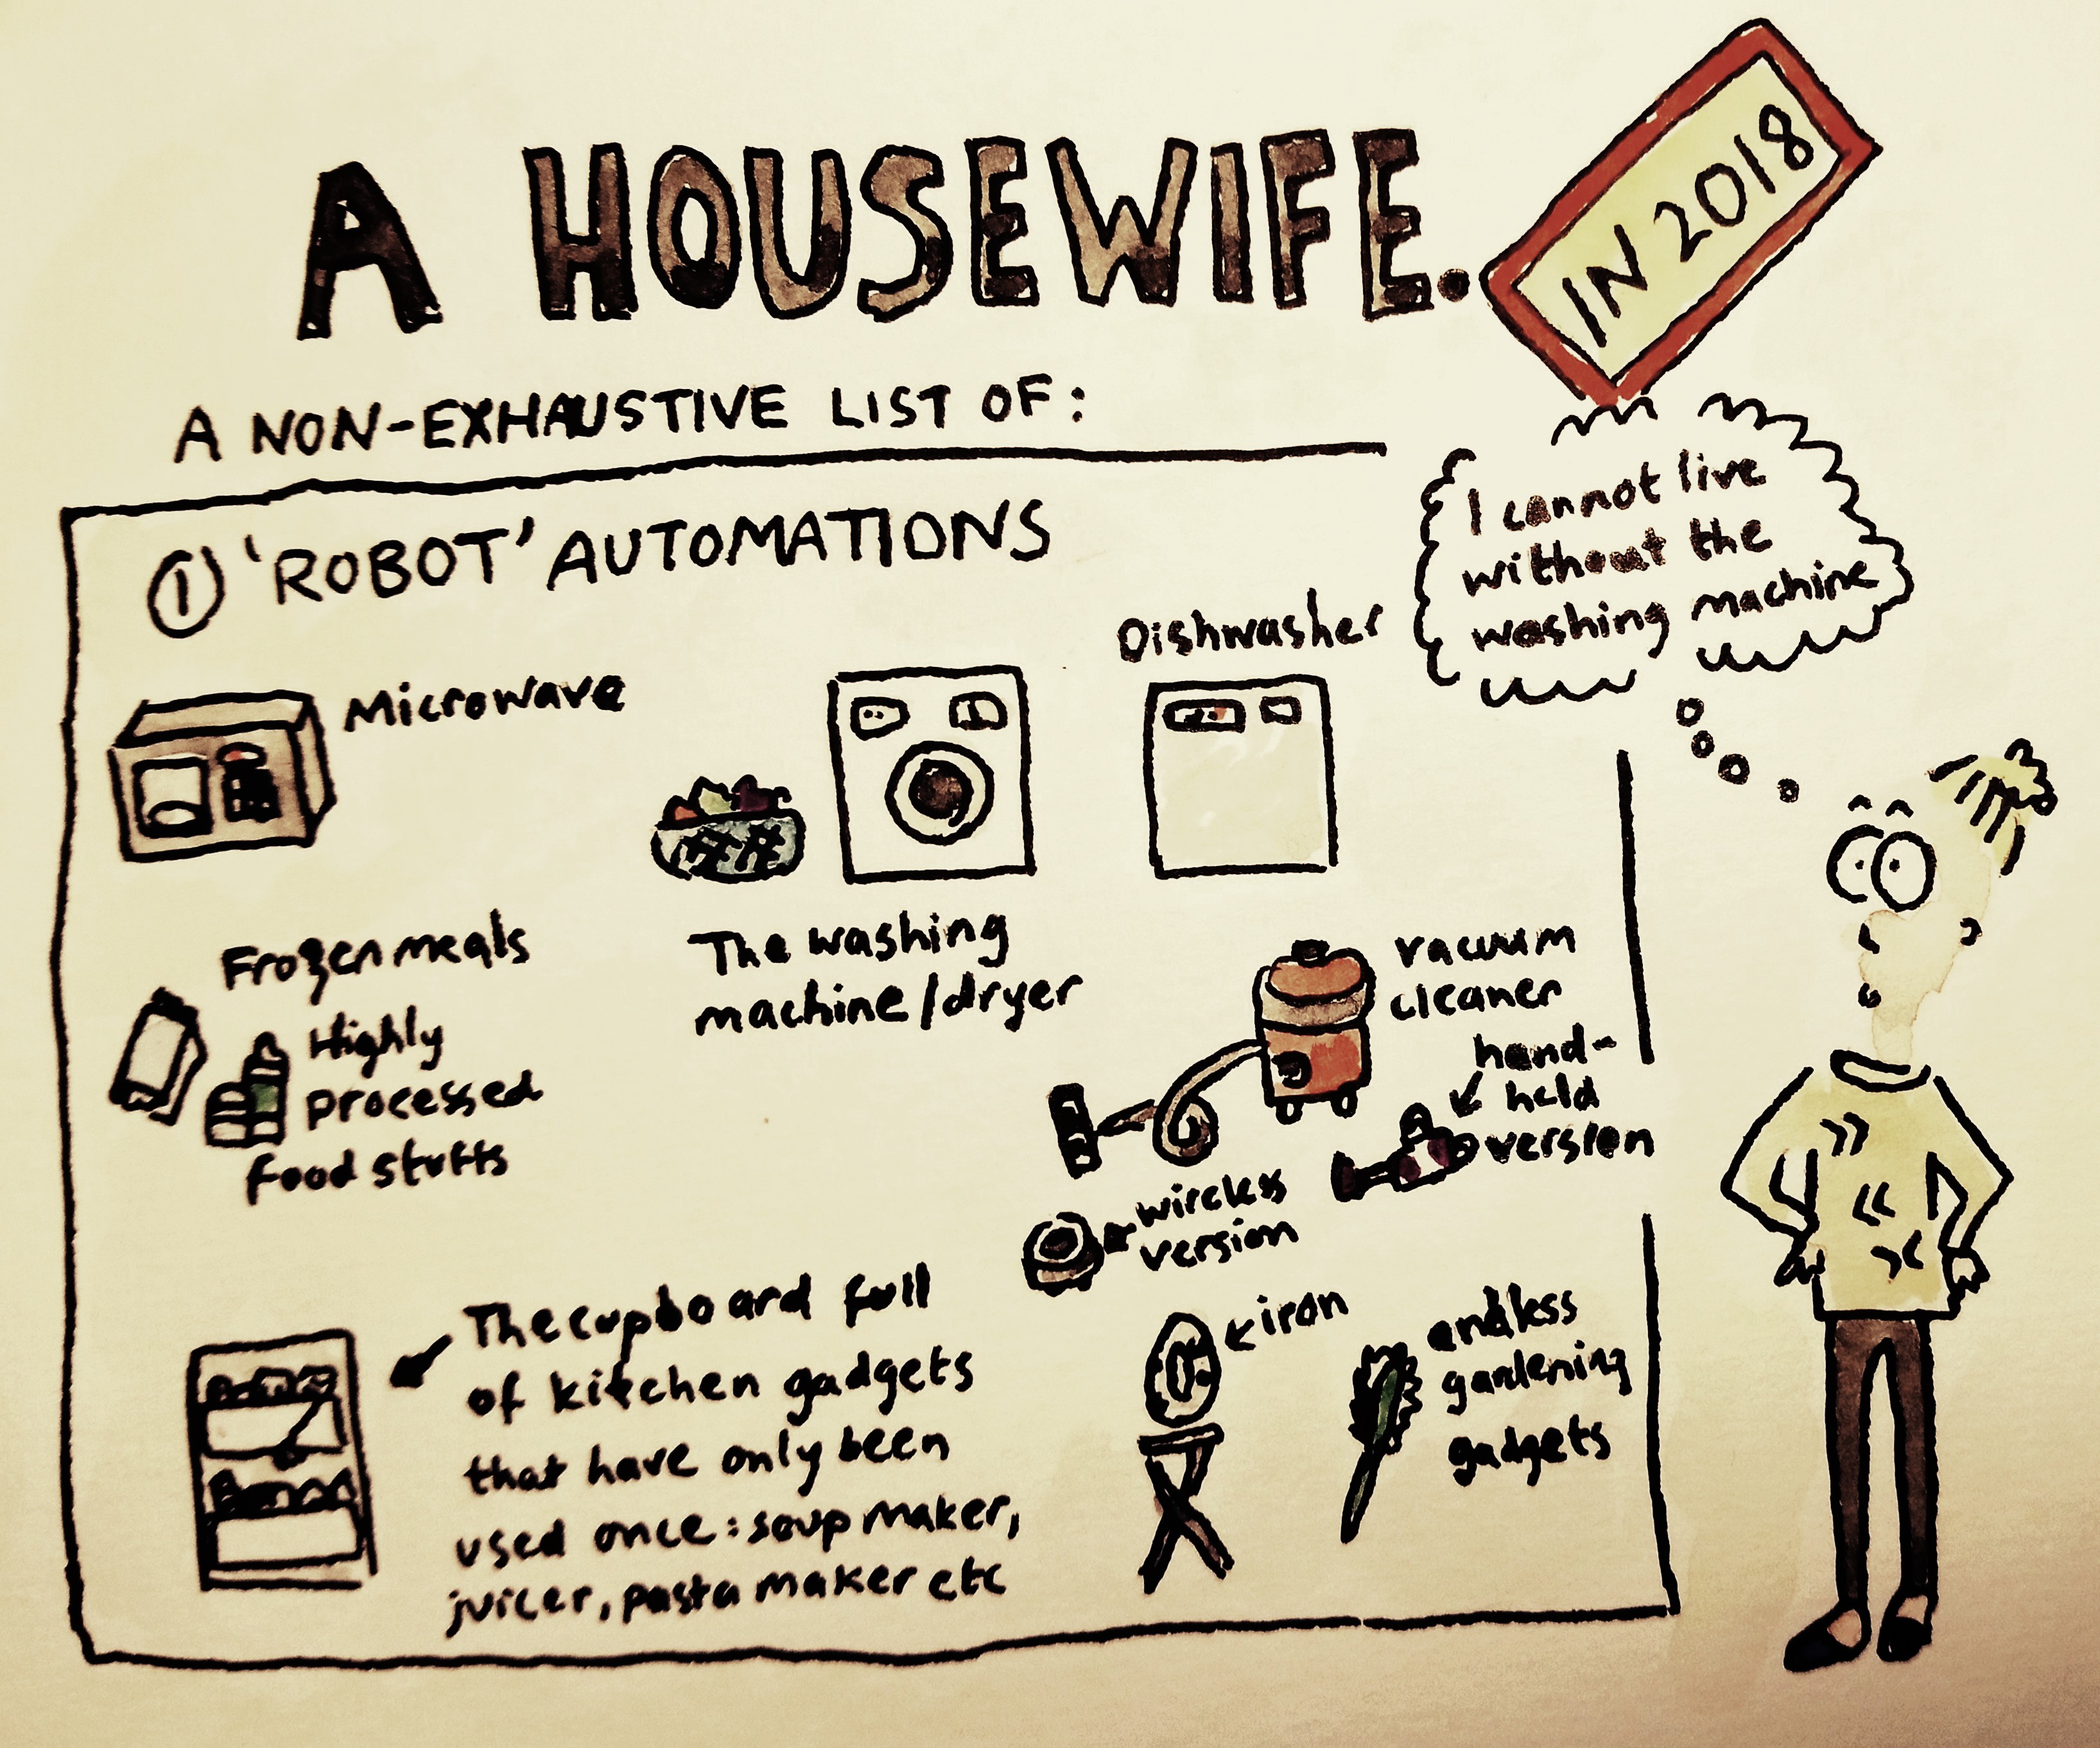 A HOUSEWIFE.
IN 2018
A NON-EXHAUSTIVE LIST OF:
① 'ROBOT' AUTOMATIONS
I cannot live
without the
washing machine
Microwave
Dishwasher
Frozen meals
Highly
processed
food stuffs
The washing
machine/dryer
vacuum
cleaner
hand-
held
version
wireless
version
The cupboard full
of kitchen gadgets
that have only been
used once: soup maker,
juicer, pasta maker etc
iron
endless
gardening
gadgets